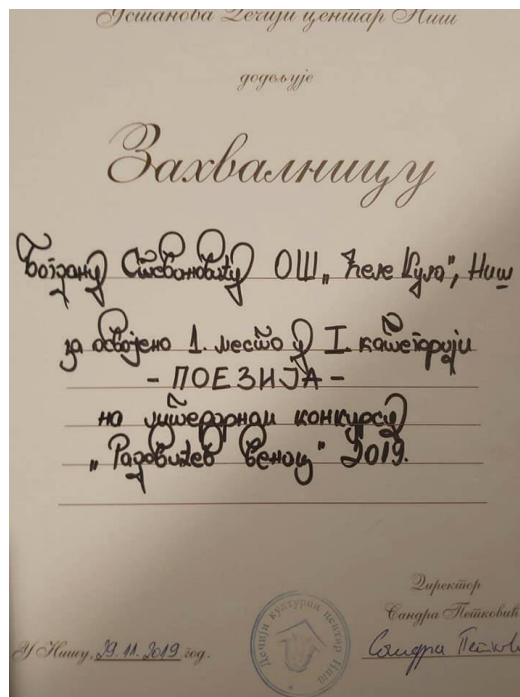 Установа Дечији центар Ниш
додељује
Захвалницу
Богдану Стевановићу ОШ „Ћеле Кула", Ниш
за освојено 1. место у I категорији
- ПОЕЗИЈА -
на литерарном конкурсу
„Радовићев венац" 2019.
Директор
Сандра Петковић
У Нишу, 29.11.2019 год.
Дечији културни центар Ниш